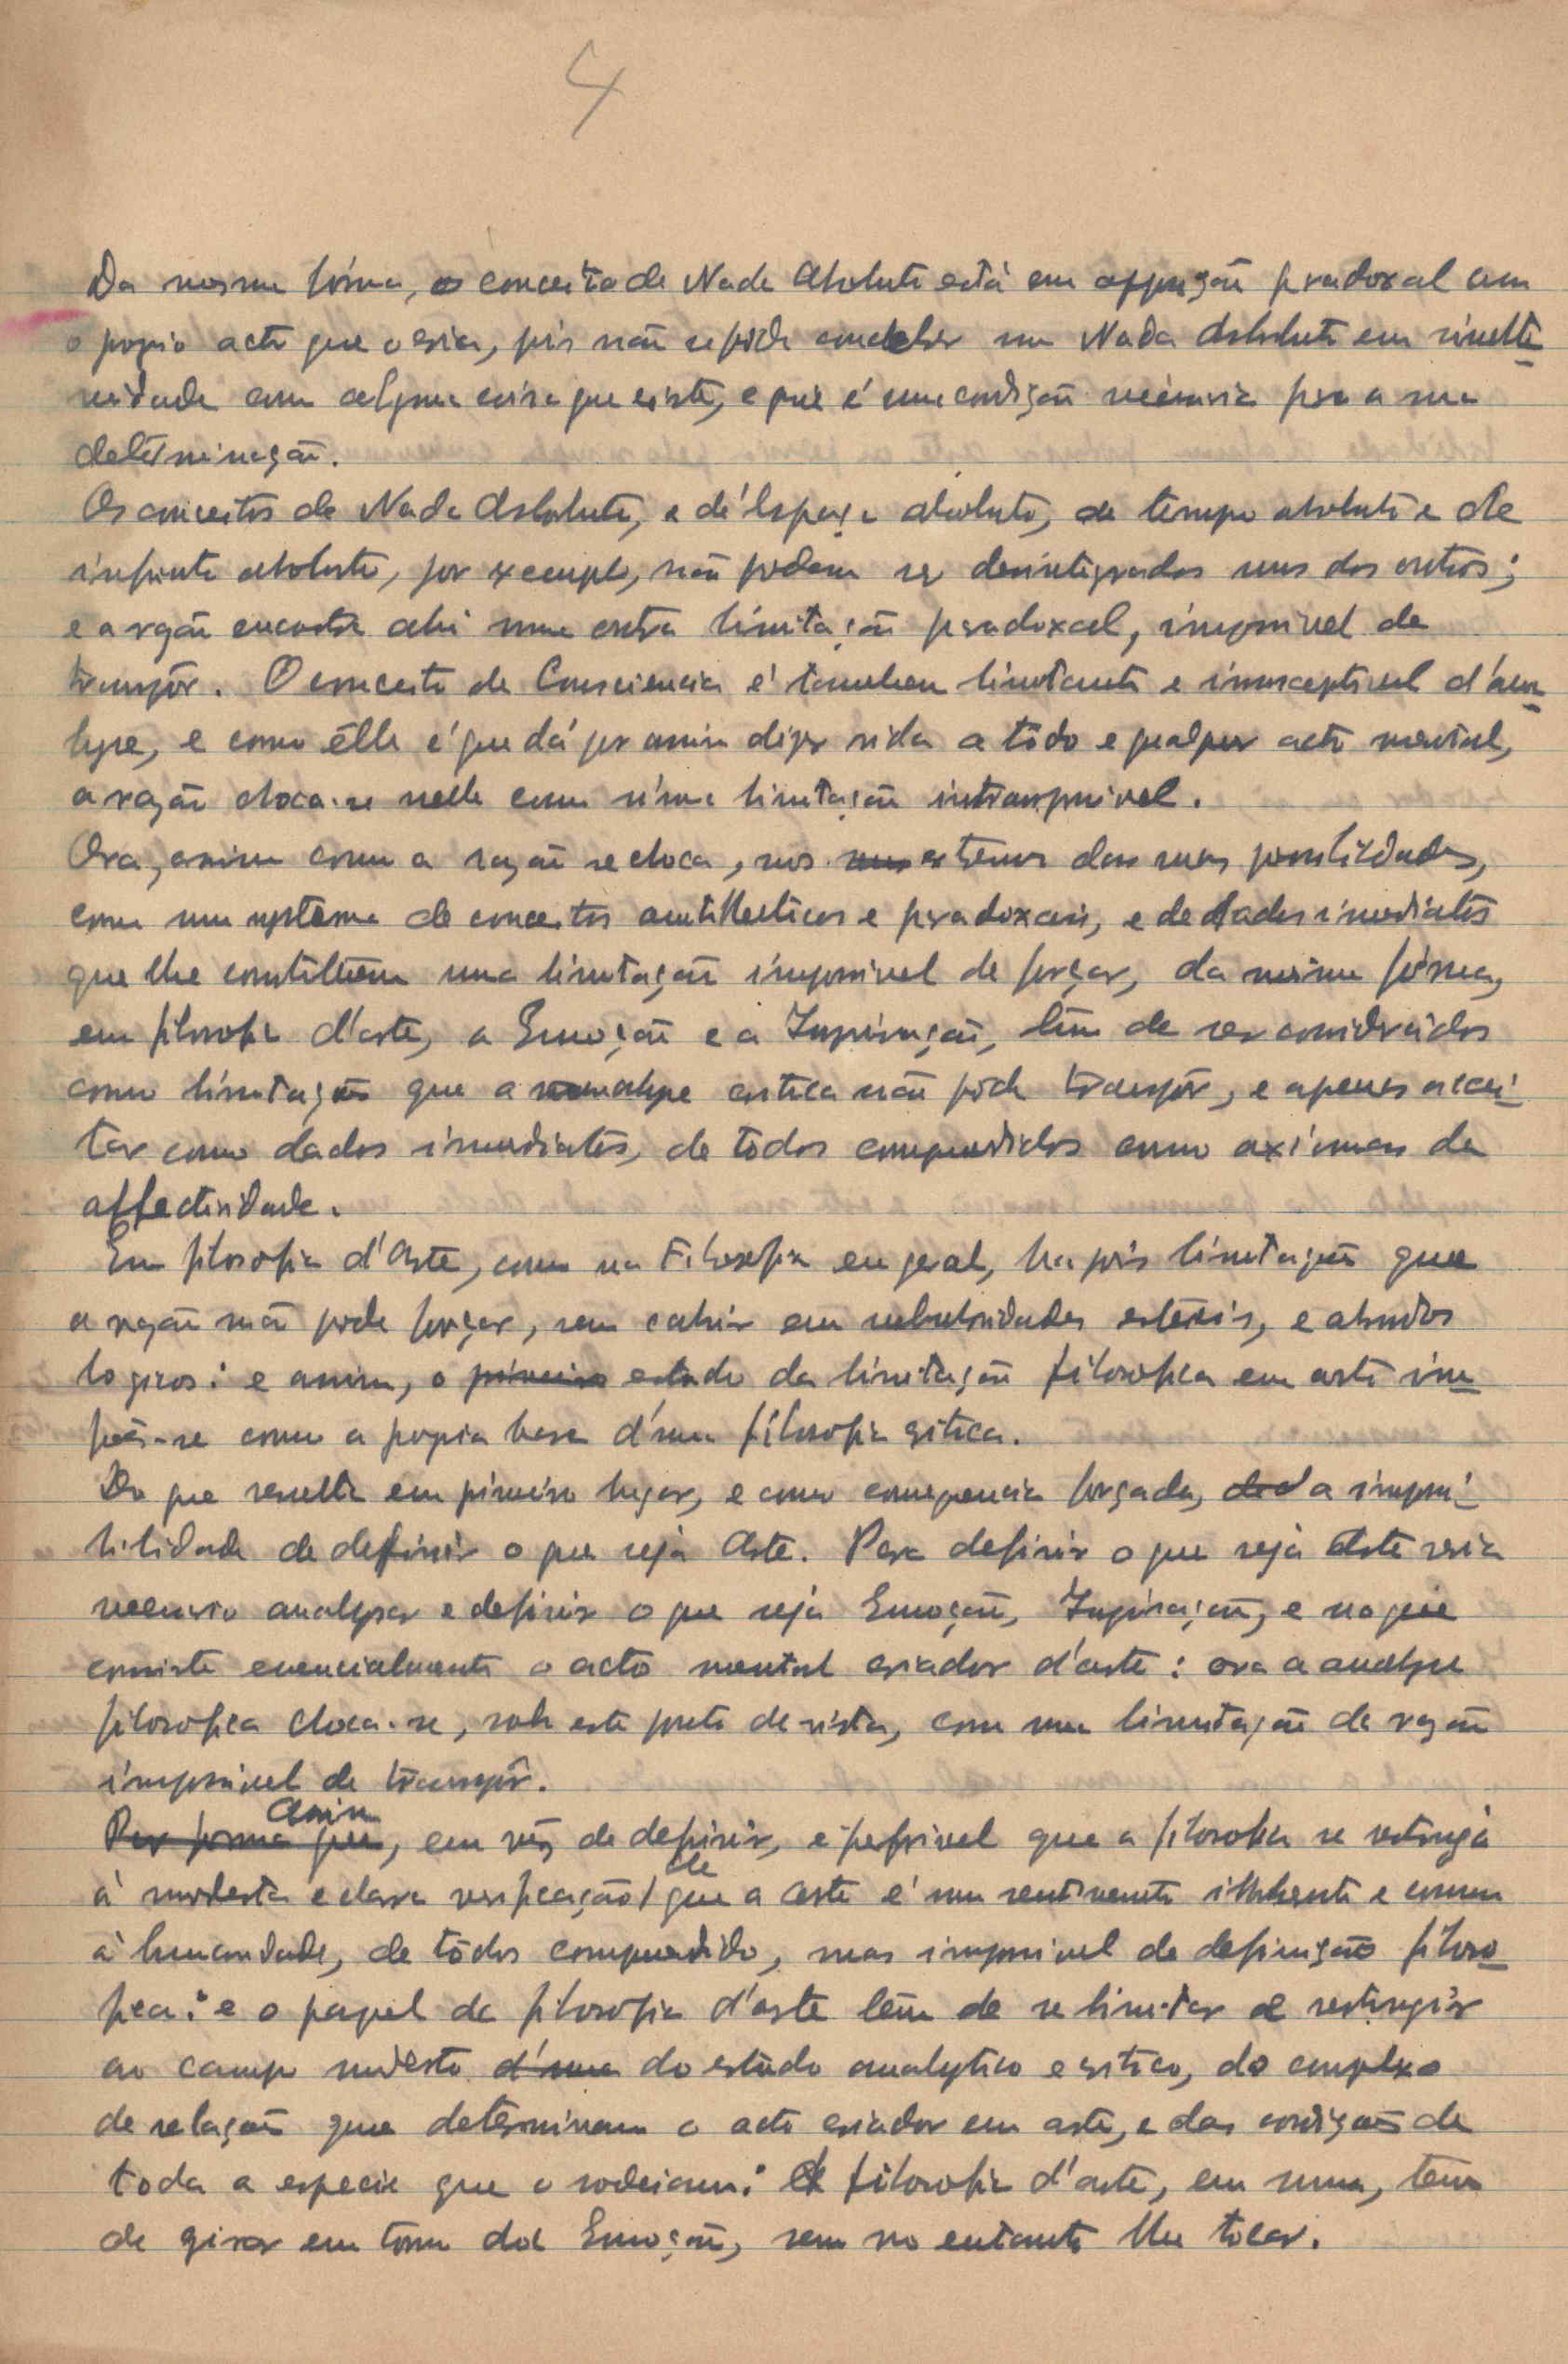 4
Da mesma fórma, o conceito de Nada Absoluto está em opposição paradoxal com
o proprio acto que o cria, pois não se póde conceber um Nada Absoluto em simulta-
neidade com alguma coisa que existe, e que é uma condição necessaria para a sua
determinação.
Os conceitos de Nada Absoluto, e d'Espaço absoluto, de tempo absoluto e de
infinito absoluto, por exemplo, não podem ser desintegrados uns dos outros;
e a razão encontra ahi uma outra limitação paradoxal, impossivel de
transpôr. O conceito de Consciencia é tambem limitante e insusceptivel d'ana-
lyse, e como êlle é que dá por assim dizer vida a tôdo e qualquer acto mental,
a razão choca-se nelle com uma limitação intransponivel.
Ora, assim como a razão se choca, nos extremos das suas possibilidades,
com um systema de conceitos antitheticos e paradoxais, e de dados imediatos
que lhe constituem uma limitação impossivel de forçar, da mesma fórma,
em filosofia d'arte, a Emoção e a Inspiração, têm de ser considerados
como limitações que a analyse critica não póde transpôr, e apenas acei-
tar como dados imediatos, de todos comprendidos como axiomas da
affectividade.
Em filosofia d'Arte, como na Filosofia em geral, ha pois limitações que
a razão não pode forçar, sem cahir em subtilidades estéreis, e absurdos
logicos: e assim, o primeiro estudo da limitação filosofica em arte im-
põe-se como a propria base d'uma filosofia critica.
Do que resulta em primeiro lugar, e como consequencia forçada, a impossi-
bilidade de definir o que seja Arte. Para definir o que seja Arte seria
necessario analysar e definir o que seja Emoção, Inspiração, e no que
consiste essencialmente o acto mental criador d'arte: ora a analyse
filosofica choca-se, sob este ponto de vista, com uma limitação da razão
impossivel de transpôr.
Assim
Por forma que, em vez de definir, é preferivel que a filosofia se restrinja
de
á modesta e clara verificação que a arte é um sentimento inherente e comum
á humanidade, de tôdos comprendido, mas impossivel de definição filoso-
fica: e o papel da filosofia d'arte têm de se limitar e restringir
ao campo modesto d'uma do estudo analytico e critico, do complexo
de relações que determinam o acto criador em arte, e das condições de
toda a especie que o rodeiam: A filosofia d'arte, em suma, têm
de girar em torno da Emoção, sem no entanto lhe tocar.